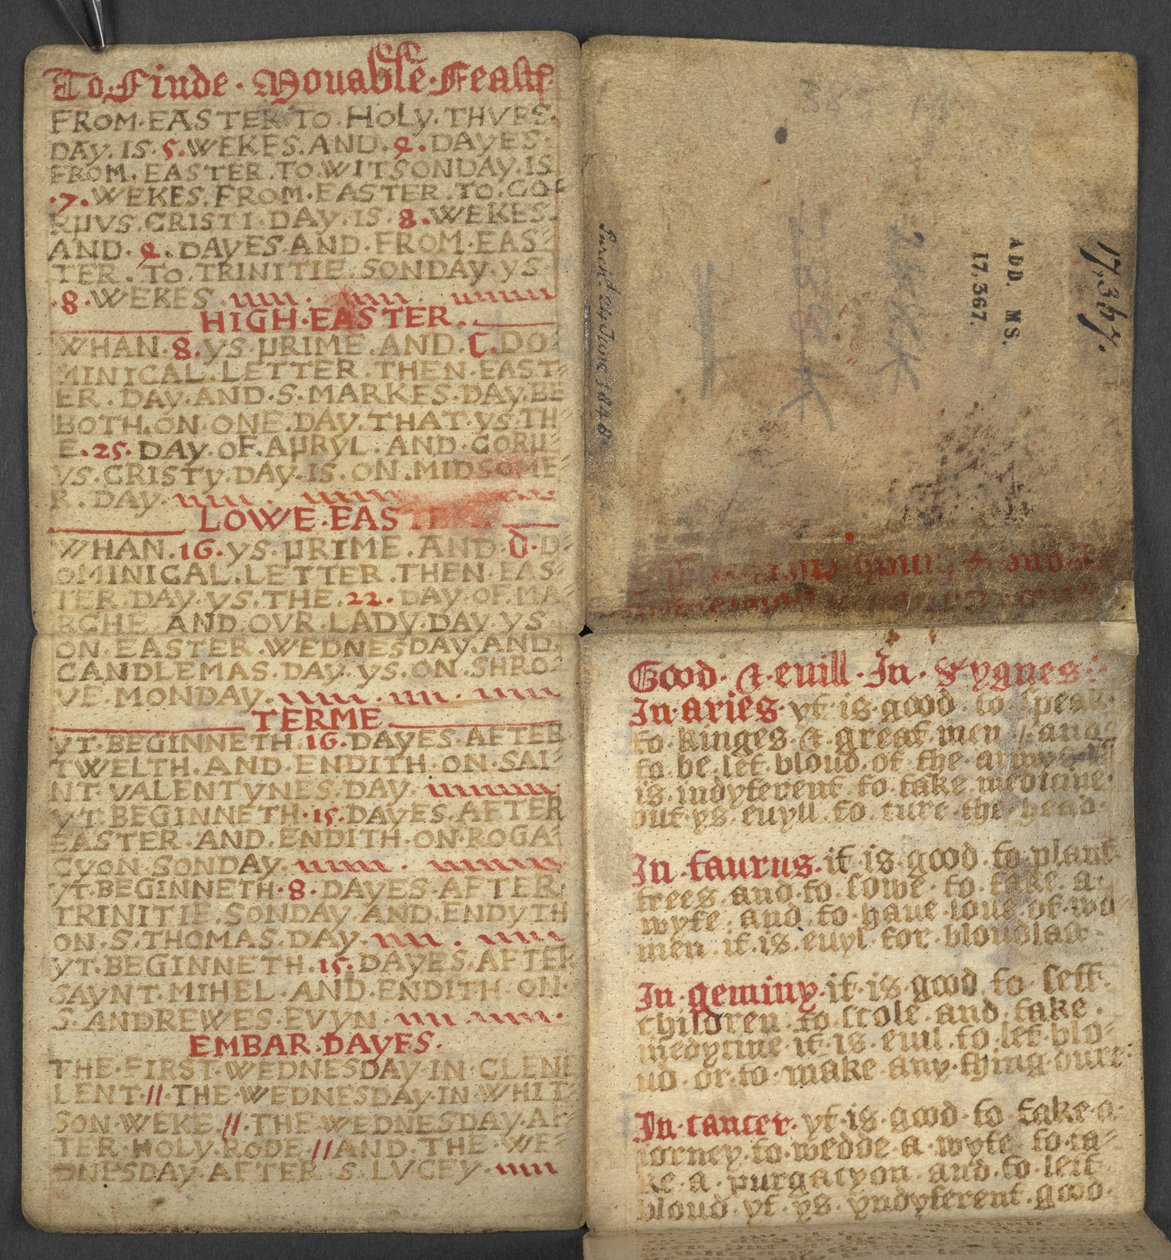 To·Finde·Mouable·Feastf
FROM·EASTER·TO·HOLY·THVRS·
DAY·IS·5·WEKES·AND·2·DAYES·
FROM·EASTER·TO·WITSONDAY·IS
·7·WEKES·FROM·EASTER·TO·CO⸗
RPVS·CRISTI·DAY·IS·8·WEKES·
AND·2·DAYES·AND·FROM·EAS⸗
TER·TO·TRINITIE·SONDAY·YS
·8·WEKES
HIGH·EASTER·
WHAN·8·YS·PRIME·AND·C·DO⸗
MINICAL·LETTER·THEN·EAST⸗
ER·DAY·AND·S·MARKES·DAY·BE
BOTH·ON·ONE·DAY·THAT·YS·TH⸗
E·25·DAY·OF·APRYL·AND·CORP⸗
VS·CRISTY·DAY·IS·ON·MIDSOME⸗
R·DAY
LOWE·EAS
WHAN·16·YS·PRIME·AND·D·D⸗
OMINICAL·LETTER·THEN·EAS⸗
TER·DAY·YS·THE·22·DAY·OF·MA⸗
RCHE·AND·OVR·LADY·DAY·YS
ON·EASTER·WEDNESDAY·AND·
CANDLEMAS·DAY·YS·ON·SHRO⸗
VE·MONDAY
TERME
YT·BEGINNETH·16·DAYES·AFTER
TWELTH·AND·ENDITH·ON·SAI⸗
NT·VALENTYNES·DAY
YT·BEGINNETH·15·DAYES·AFTER
EASTER·AND·ENDITH·ON·ROGA⸗
CYON·SONDAY
YT·BEGINNETH·8·DAYES·AFTER
TRINITIE·SONDAY·AND·ENDYTH
ON·S·THOMAS·DAY
YT·BEGINNETH·15·DAYES·AFTER
SAYNT·MIHEL·AND·ENDITH·ON·
S·ANDREWES·EVYN
EMBAR·DAYES·
THE·FIRST·WEDNESDAY·IN·CLENE
LENT·//·THE·WEDNESDAY·IN·WHIT⸗
SON·WEKE·//·THE·WEDNESDAY·AF⸗
TER·HOLY·RODE·//·AND·THE·WE⸗
DNESDAY·AFTER·S·LVCEY
17,367.
ADD. MS.
17,367.
Purchd 24 June 1848
Good·&·euill·In·Sygnes
In·aries·yt·is·good·to·speak·
to·kinges·&·great·men·/·and
to·be·let·bloud·of·the
is·indyferent·to·take·medicine·
but·ys·euyll·to·cure·the·head·
In·taurus·it·is·good·to·plant
trees·and·to·sowe·to·take·a·
wyfe·and·to·haue·loue·of·wo⸗
men·it·is·euyl·for·
In·geminy·it·is·good·to·sett·
children·to·scole·and·take·
medycine·it·is·euil·to·let·blo⸗
ud·or·to·make·any·thing·dure·
In·cancer·yt·is·good·to·take·a·
iorney·to·wedde·a·wyfe·to·ta⸗
ke·a·purgacyon·and·to·lett·
bloud·yt·ys·yndyferent·good·